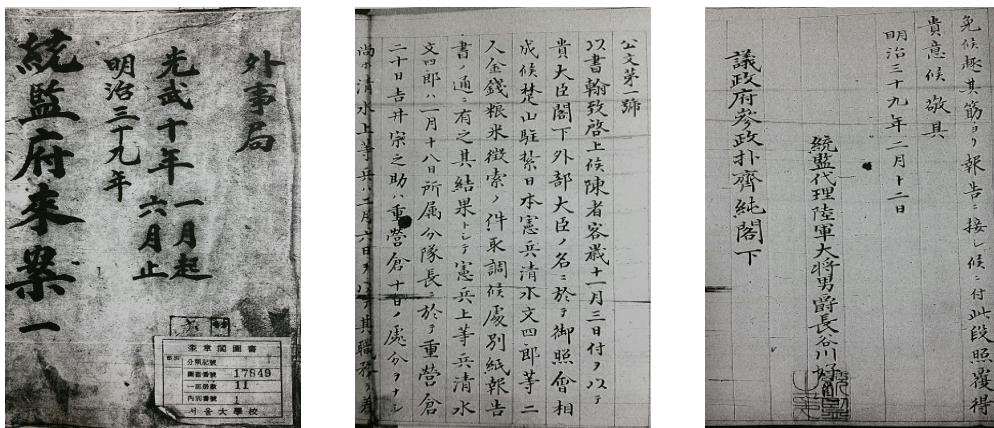 外事局
光武十年 一月起
明治三十九年 六月止
統監府来案 一
奎章閣圖書
分類記號
圖書番號 17849
一部冊數 11
內別番號 1
서울大學校
公文第一號
以書翰致啓上候陳者客歳十一月三日付ヲ以テ
貴大臣閣下外部大臣ノ名ニ於テ御照會相
成候楚山駐紮日本憲兵清水文四郎等二
人金錢粮米徴索ノ件取調候處別紙報告
書ノ通ニ有之其結果トシテ憲兵上等兵清水
文四郎ハ一月十八日所属分隊長ニ於テ重営倉
二十日吉井宗之助ハ重営倉十日ノ處分ヲナシ
尚ホ清水上等兵ハ二月六日ヲ以テ其職務ヲ差
免候趣其筋ヨリ報告ニ接シ候ニ付此段照覆得
貴意候 敬具
明治三十九年二月十二日
統監代理陸軍大将男爵長谷川好道
議政府参政朴齊純閣下